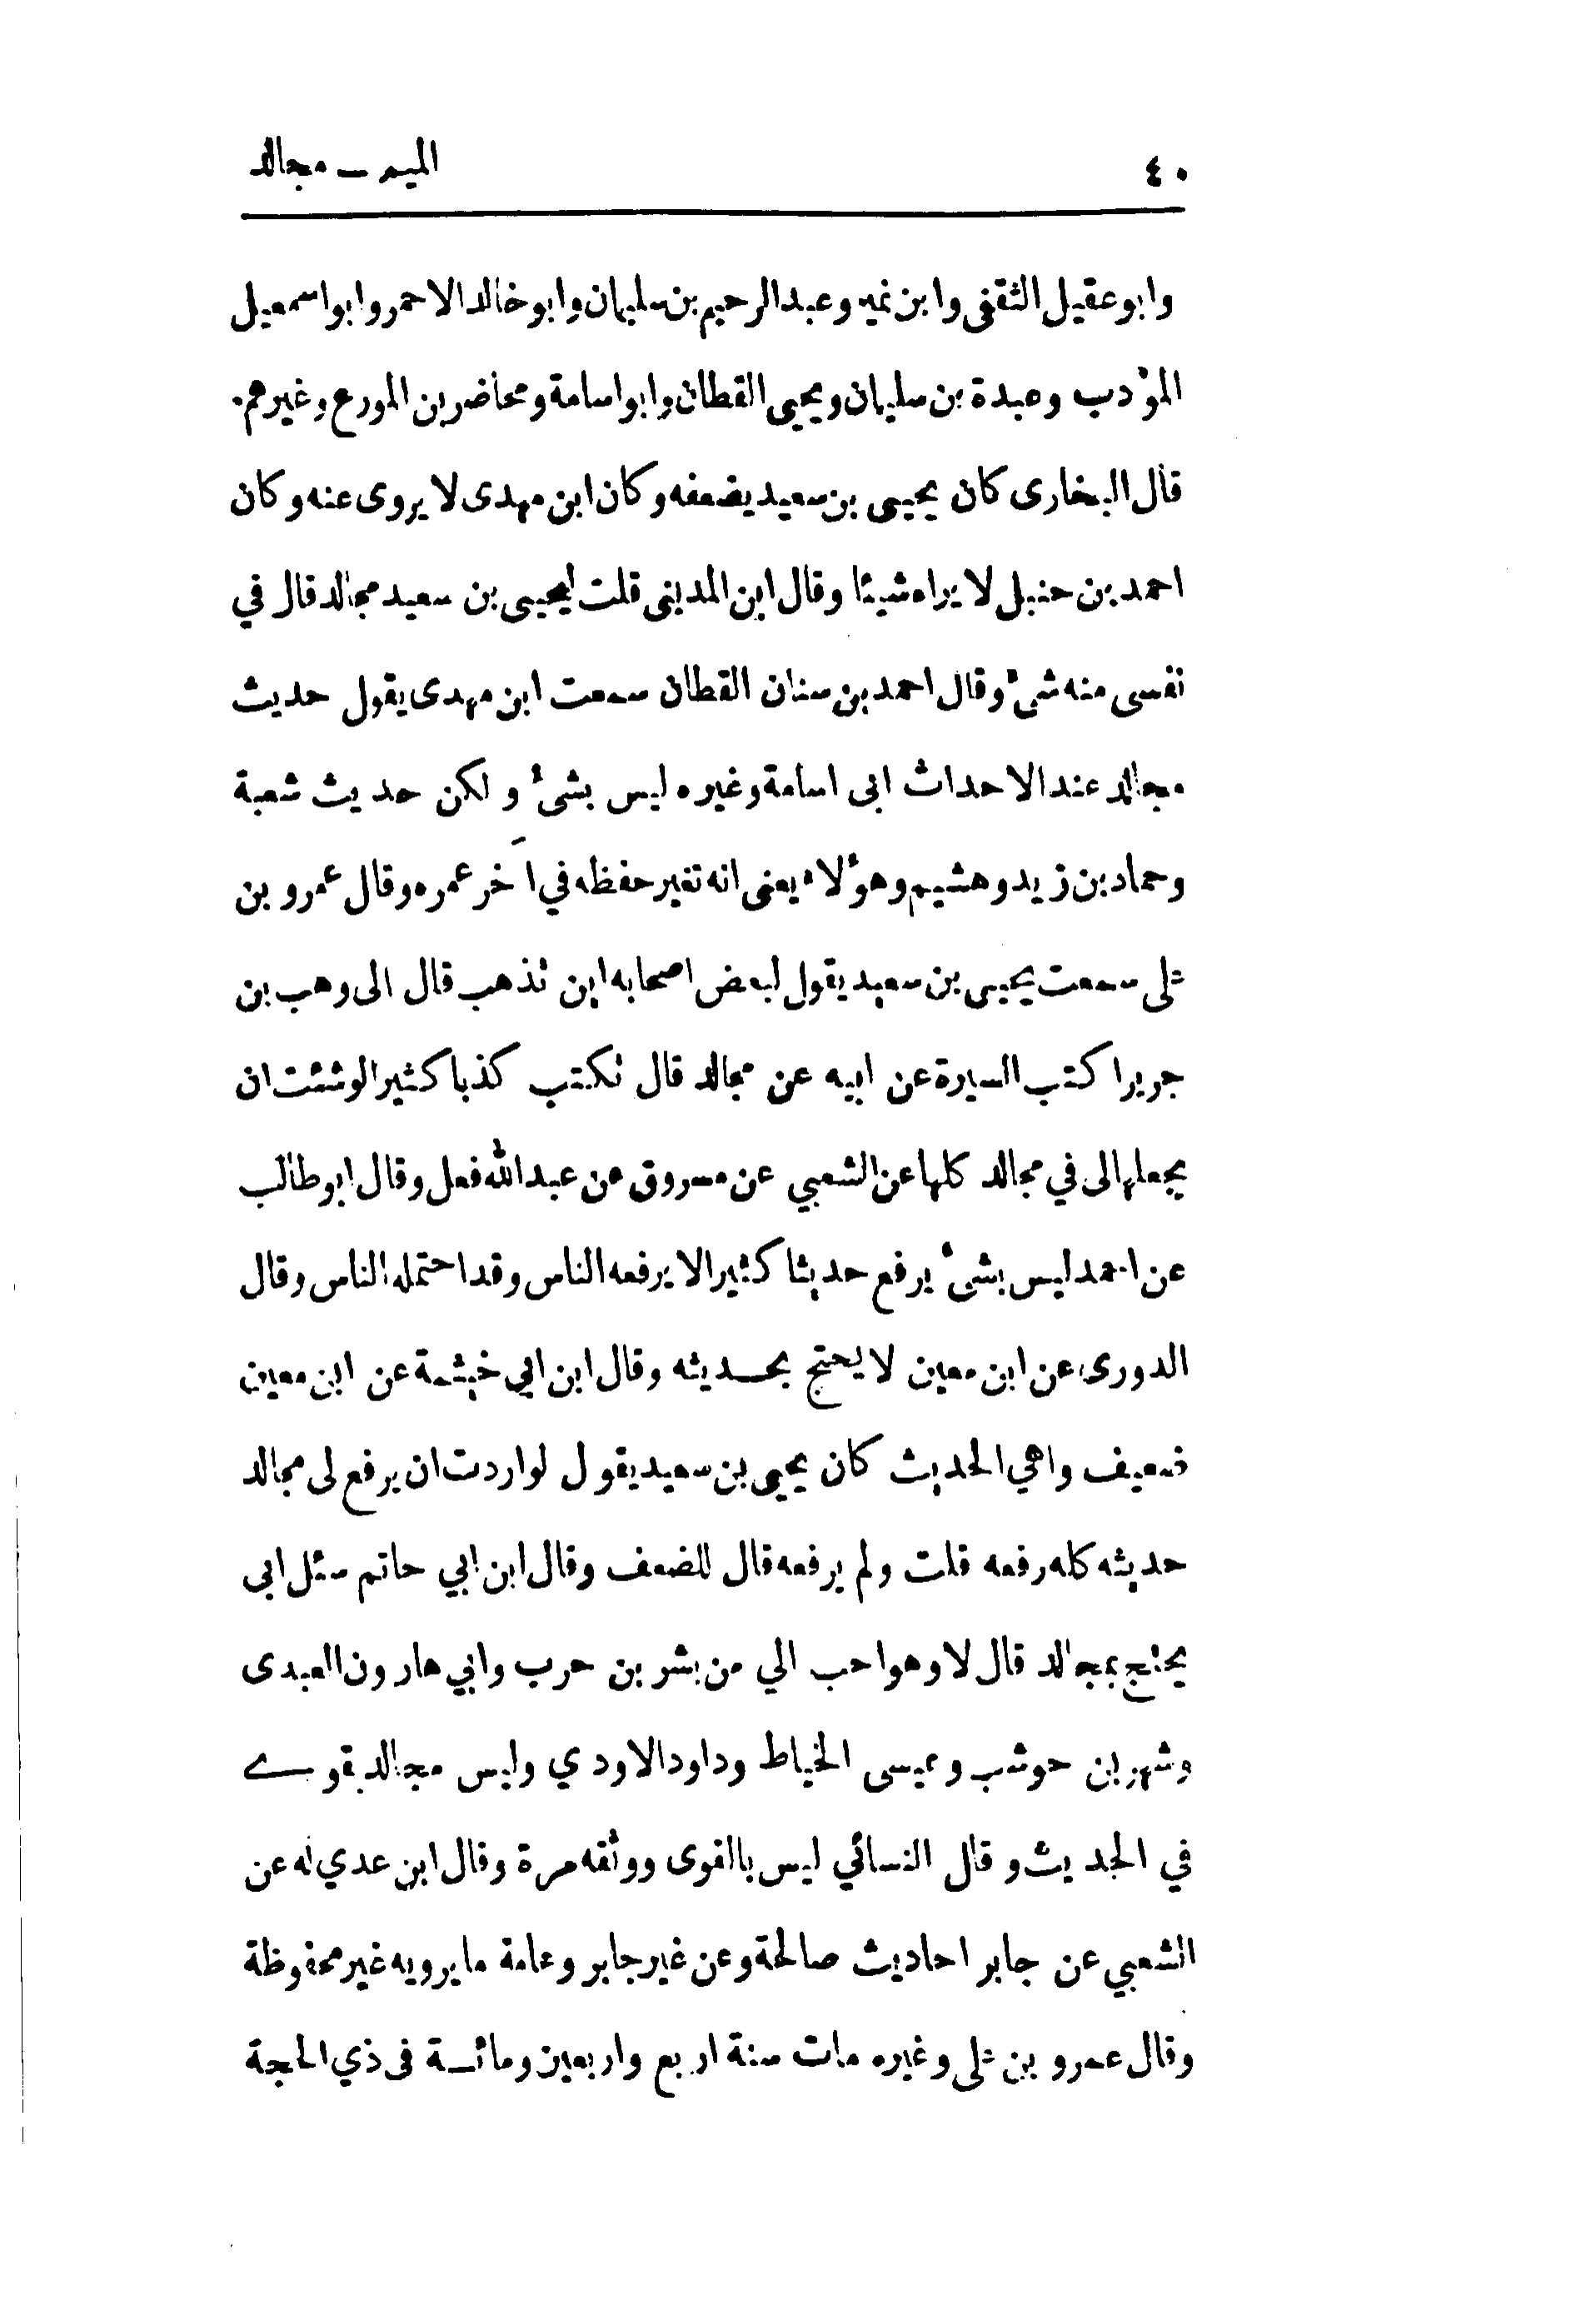 ٤٠ الميم ــ مجالد
وابو عقيل الثقفى وابن نمير وعبد الرحيم بن سليمان وابو خالد الاحمر وابو اسمعيل
المؤدب وعبدة بن سليمان ويحيى القطان وابو اسامة ومحاضر بن المورع وغيرهم.
قال البخارى كان يحيى بن سعيد يضعفه وكان ابن مهدى لا يروى عنه وكان
احمد بن حنبل لا يراه شيئا وقال ابن المدينى قلت ليحيى بن سعيد مجالد قال في
نفسى منه شئ وقال احمد بن سنان القطان سمعت ابن مهدى يقول حديث
مجالد عند الاحداث ابى اسامة وغيره ليس بشئ و لكن حديث شعبة
وحماد بن زيد وهشيم وهؤلاء يعنى انه تغير حفظه في آخر عمره وقال عمرو بن
على سمعت يحيى بن سعيد يقول لبعض اصحابه اين تذهب قال الى وهب بن
جرير اكتب السيرة عن ابيه عن مجالد قال تكتب كذبا كثيرا لو شئت ان
يجعلها لى في مجالد كلها عن الشعبي عن مسروق عن عبد الله فعل وقال ابو طالب
عن احمد ليس بشئ يرفع حديثا كثيرا لا يرفعه الناس وقد احتمله الناس وقال
الدورى عن ابن معين لا يحتج بحديثه وقال ابن ابي خيثمة عن ابن معين
ضعيف واهي الحديث كان يحيى بن سعيد يقول لو اردت ان يرفع لى مجالد
حديثه كله رفعه قلت ولم يرفعه قال للضعف وقال ابن ابي حاتم سئل ابى
يحتج بمجالد قال لا وهو احب الي من بشر بن حرب وابي هارون العبدى
وشهر بن حوشب وعيسى الخياط وداود الاودي وليس مجالد بقوے
في الحديث و قال النسائي ليس بالقوى ووثقه مرة وقال ابن عدي له عن
الشعبي عن جابر احاديث صالحة وعن غير جابر وعامة ما يرويه غير محفوظة
وقال عمرو بن على وغيره مات سنة اربع واربعين ومائة فى ذي الحجة